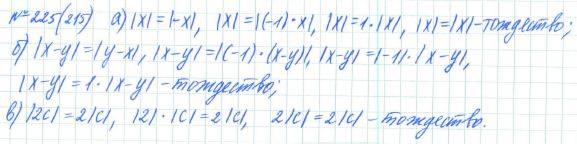 № 225(215) а) |x|=|-x|, |x|=|(-1)·x|, |x|=1·|x|, |x|=|x|-тождество;
б) |x-y|=|y-x|, |x-y|=|(-1)·(x-y)|, |x-y|=|-1|·|x-y|,
|x-y|=1·|x-y|-тождество;
в) |2c|=2|c|, |2|·|c|=2|c|, 2|c|=2|c|-тождество.